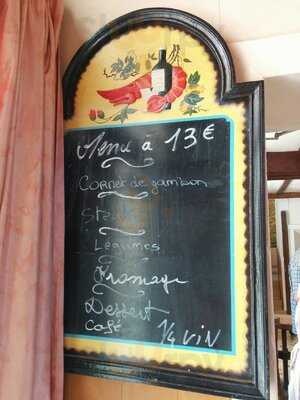 Menu à 13 €
Cornet de jambon
Steak
Légumes
Fromage
Dessert
Café 1/4 vin